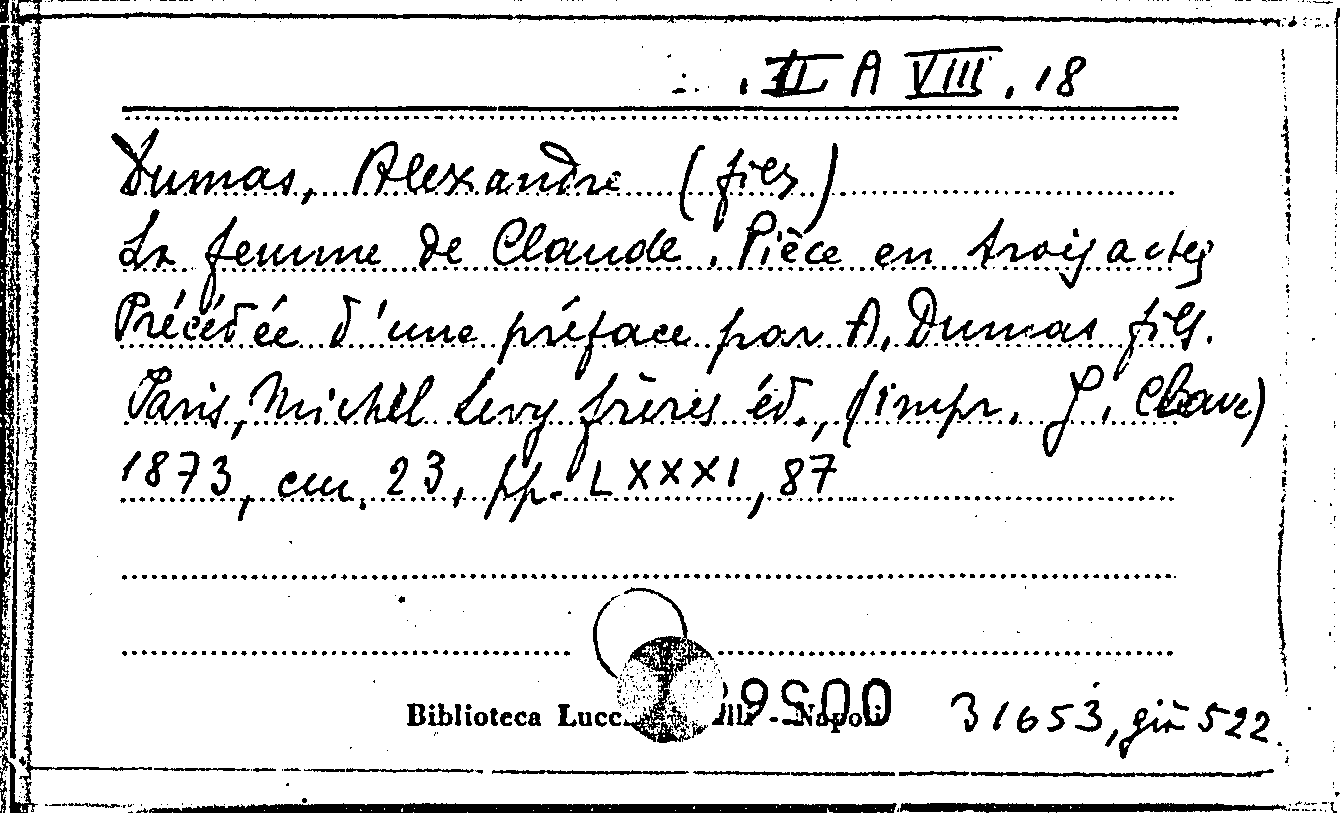 II A VIII. 18
Dumas, Alexandre (fils)
La femme de Claude. Pièce en trois actes
Précédée d'une préface par A. Dumas fils.
Paris, Michel Levy frères éd., (impr. J. Claye)
1873, cm. 23, pp. LXXXI, 87
Biblioteca - Napoli
31653, già 522